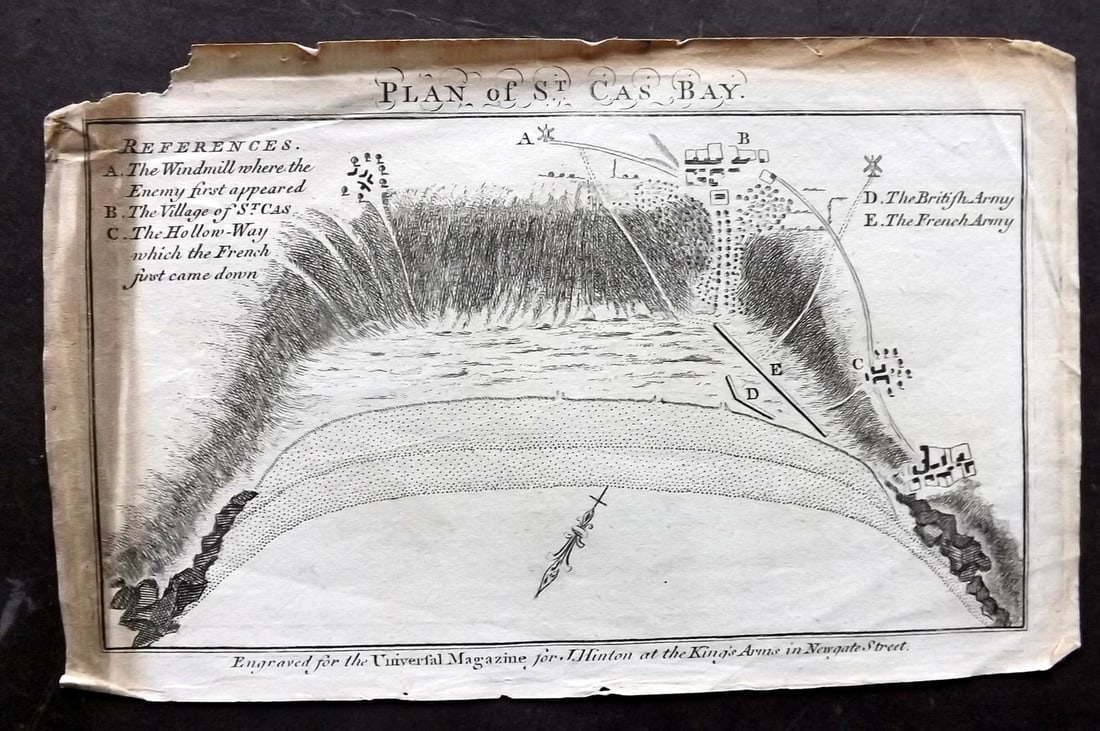 PLAN of ST CAS BAY.
REFERENCES.
A. The Windmill where the
Enemy first appeared
B. The Village of ST CAS
C. The Hollow-Way
which the French
first came down
A
B
D. The Britiſh Army
E. The French Army
C
E
D
Engraved for the Univerſal Magazine for J. Hinton at the King's Arms in Newgate Street.